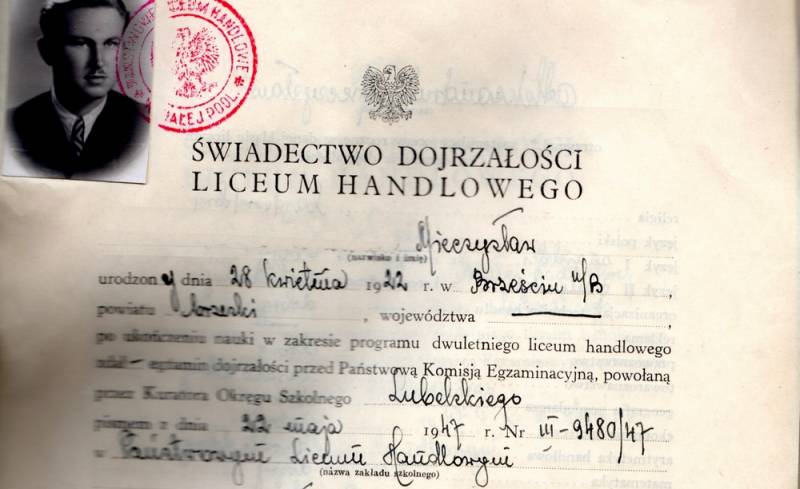 LICEUM HANDLOWE
BIAŁEJ PODL.
ŚWIADECTWO DOJRZAŁOŚCI
LICEUM HANDLOWEGO
Mieczysław
(nazwisko i imię)
urodzony dnia 28 kwietnia 1922 r. w Brześciu n/B,
powiatu brzeski, województwa
po ukończeniu nauki w zakresie programu dwuletniego liceum handlowego
zdał – egzamin dojrzałości przed Państwową Komisją Egzaminacyjną, powołaną
przez Kuratora Okręgu Szkolnego Lubelskiego
pismem z dnia 22 maja 1947 r. Nr III-9480/47
w Państwowym Liceum Handlowym
(nazwa zakładu szkolnego)